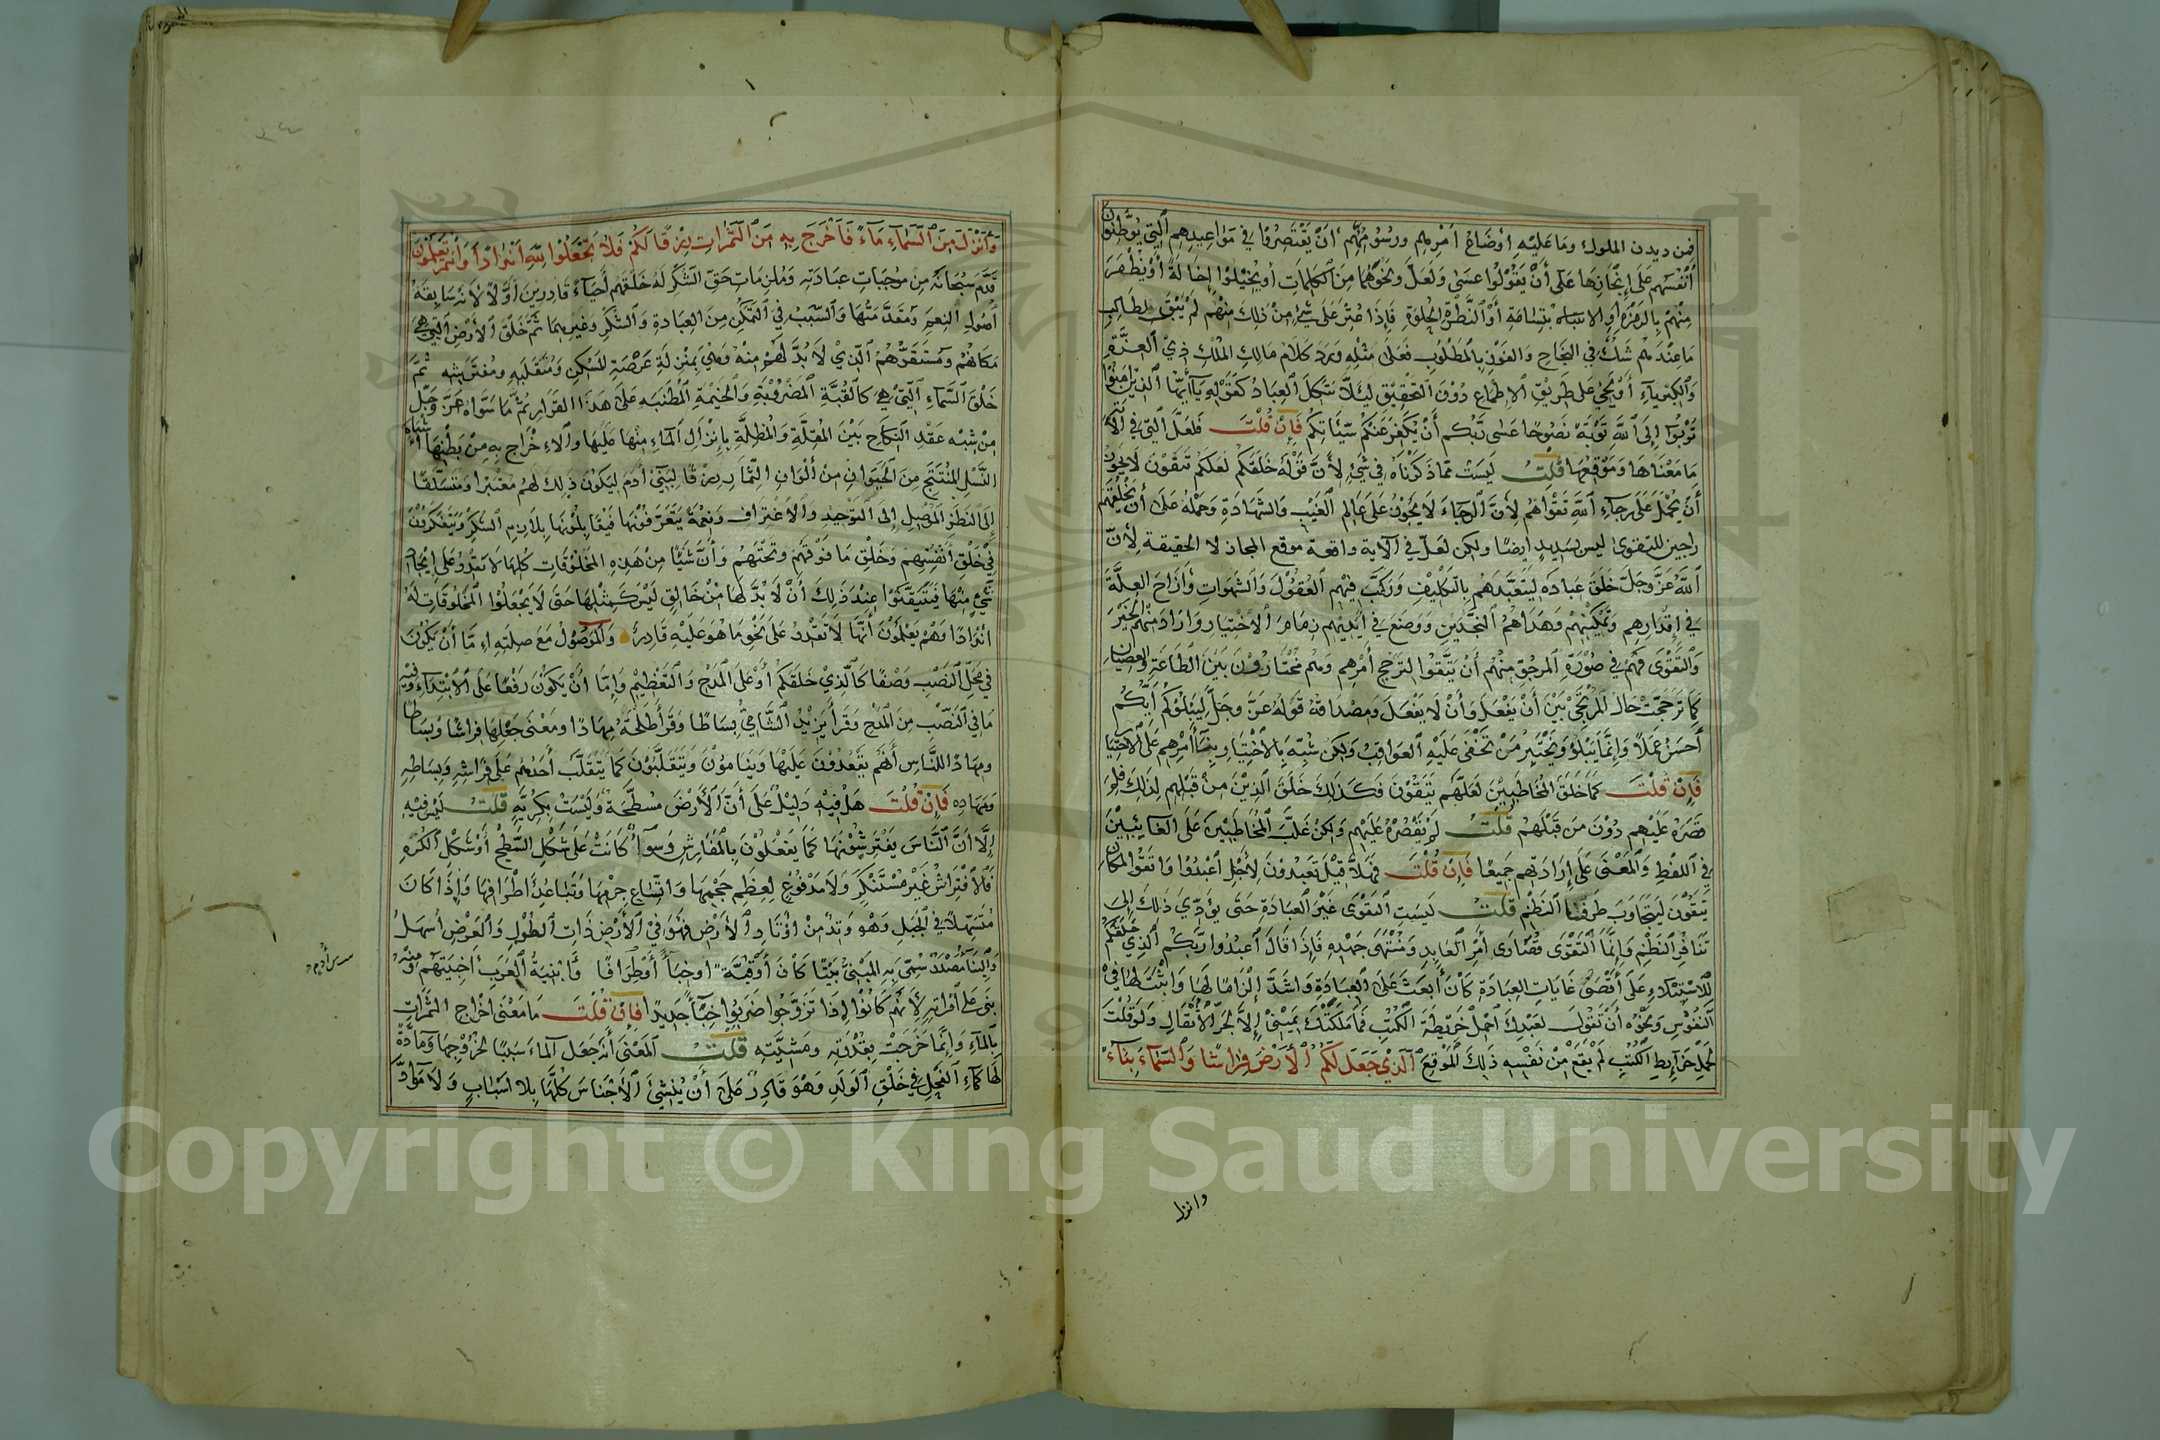 فمن ديدن الملوك وما عليه اوضاع امرهم ورسومهم أن يقتصروا في مواعيدهم التي يوطنون
أنفسهم على إنجازها على أن يقولوا عسى ولعل ونحوهما من الكلمات أو يخيلوا إخالة أو يظفر
منهم بالرمزة أو الابتسامة أو النظرة الحلوة فإذا عثر على شيء من ذلك منهم لم يبق للطالب
ما عندهم شك في النجاح والفوز بالمطلوب فعلى مثله ورد كلام مالك الملك ذي العزة
والكبرياء أو يجئ على طريق الإطماع دون التحقيق لئلا يتكل العباد كقوله يا أيها الذين آمنوا
توبوا إلى الله توبة نصوحا عسى ربكم أن يكفر عنكم سيئاتكم فإن قلت فلعل التي في الآية
ما معناها وما موقعها قلت ليست مما ذكرناه في شيء لأن قوله خلقكم لعلكم تتقون لا يجوز
أن يحمل على رجاء الله تقواهم لأن الرجاء لا يجوز على عالم الغيب والشهادة وحمله على أن يخلقهم
راجين للتقوى ليس بسديد أيضا ولكن لعل في الآية واقعة موقع المجاز لا الحقيقة لأن
الله عز وجل خلق عباده ليتعبدهم بالتكليف وركب فيهم العقول والشهوات وأزاح العلة
في إقدارهم وتمكينهم وهداهم النجدين ووضع في أيديهم زمام الاختيار وأراد منهم الخير
والتقوى فهم في صورة المرجو منهم أن يتقوا لترجح أمرهم وهم مختارون بين الطاعة والعصيان
كما ترجحت حال المرتجى بين أن يفعل وأن لا يفعل ومصداقه قوله عز وجل ليبلوكم أيكم
أحسن عملا وإنما يبلو ويختبر من تخفى عليه العواقب ولكن شبه بالاختبار بناء أمرهم على الاختيار
فإن قلت كما خلق المخاطبين لعلهم يتقون فكذلك خلق الذين من قبلهم لذلك فلم
قصره عليهم دون من قبلهم قلت لم يقصره عليهم ولكن غلب المخاطبين على الغائبين
في اللفظ والمعنى على إرادتهم جميعا فإن قلت فهلا قيل تعبدون لأجل اعبدوا واتقوا لمكان
تتقون ليتجاوب طرفا النظم قلت ليست التقوى غير العبادة حتى يؤدي ذلك إلى
تنافر النظم وإنما التقوى قصارى أمر العابد ومنتهى جهده فإذا قال اعبدوا ربكم الذي خلقكم
للاستيلاء على أقصى غايات العبادة كان أبعث على العبادة وأشد إلزاما لها وأثبت لها في
النفوس ونحوه أن تقول لعبدك احمل خريطة الكتب فما ملكتك يميني إلا لجر الأثقال ولو قلت
لحمل خرائط الكتب لم يقع من نفسه ذلك الموقع الذي جعل لكم الأرض فراشا والسماء بناء
وانزل
وأنزل من السماء ماء فأخرج به من الثمرات رزقا لكم فلا تجعلوا لله أندادا وأنتم تعلمون
قدم سبحانه من موجبات عبادته وملزمات حق الشكر له خلقهم أحياء قادرين أولا لأنه سابقة
أصول النعم ومقدمتها والسبب في التمكن من العبادة والشكر وغيرهما ثم خلق الأرض التي هي
مكانهم ومستقرهم الذي لا بد لهم منه وهي بمنزلة عرصة المسكن ومتقلبه ومفترشه ثم
خلق السماء التي هي كالقبة المضروبة والخيمة المطنبة على هذا القرار ثم ما سواه عز وجل
من شبه عقد النكاح بين المقلة والمظلة بإنزال الماء منها عليها والإخراج به من بطنها أشباه
النسل المنتج من الحيوان من ألوان الثمار رزقا لبني آدم ليكون ذلك لهم معتبرا ومتسلقا
إلى النظر الموصل إلى التوحيد والاعتراف ونعمة يتعرفونها فيقابلونها بلازم الشكر ويتفكرون
في خلق أنفسهم وخلق ما فوقهم وتحتهم وأن شيئا من هذه المخلوقات كلها لا تقدر على إيجاد
شيء منها فيتيقنوا عند ذلك أن لا بد لها من خالق ليس كمثلها حتى لا يجعلوا المخلوقات له
اندادا وهم يعلمون أنها لا تقدر على نحو ما هو عليه قادر والموصول مع صلته إما أن يكون
في محل النصب وصفا كالذي خلقكم أو على المدح والتعظيم وإما أن يكون رفعا على الابتداء وفيه
ما في النصب من المدح وقرأ يزيد الشامي بساطا وقرأ طلحة مهادا ومعنى جعلها فراشا وبساطا
ومهادا للناس أنهم يقعدون عليها وينامون ويتقلبون كما يتقلب أحدهم على فراشه وبساطه
ومهاده فإن قلت هل فيه دليل على أن الأرض مسطحة وليست بكرية قلت ليس فيه
إلا أن الناس يفترشونها كما يفعلون بالمفارش وسواء كانت على شكل السطح أو شكل الكرة
فالافتراش غير مستنكر ولا مدفوع لعظم حجمها واتساع جرمها وتباعد أطرافها وإذا كان
متسهلا في الجبل وهو وتد من أوتاد الأرض فهو في الأرض ذات الطول والعرض أسهل
والبناء مصدر سمي به المبني بيتا كان أو قبة أو خباء أو طرافا وأبنية العرب أخبيتهم ومنه
بنى على امرأته لأنهم كانوا إذا تزوجوا ضربوا خباء جديدا فإن قلت ما معنى إخراج الثمرات
بالماء وإنما خرجت بقدرته ومشيته قلت المعنى أنه جعل الماء سببا لخروجها ومادة
لها كماء الفحل في خلق الولد وهو قادر على أن ينشئ الأجناس كلها بلا أسباب ولا مواد
Copyright © King Saud University